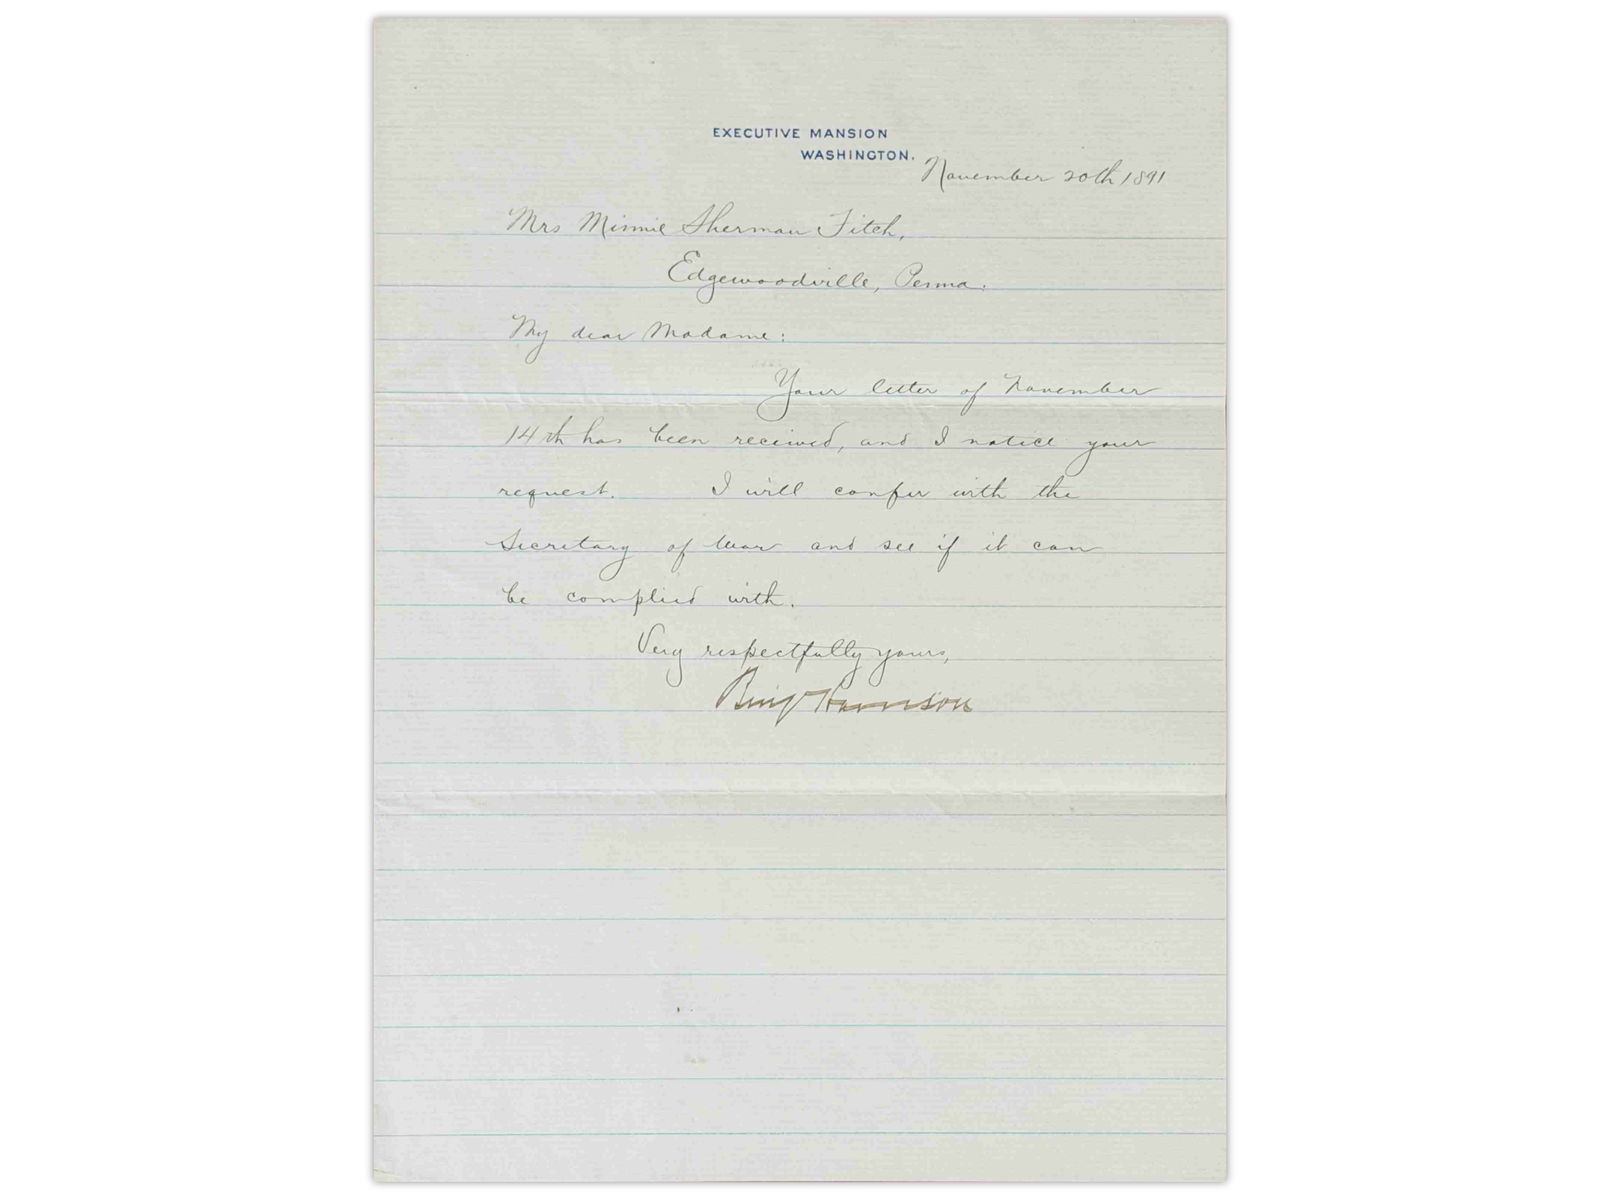 EXECUTIVE MANSION
WASHINGTON.
November 20th 1891
Mrs Minnie Sherman Fitch,
Edgewoodville, Penna.
My dear Madame:
Your letter of November
14th has been received, and I notice your
request. I will confer with the
Secretary of War and see if it can
be complied with.
Very respectfully yours,
Benj Harrison